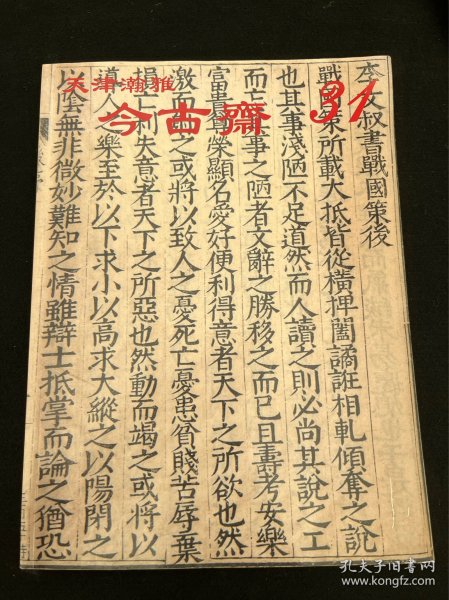 天津瀚雅
今古齋 31
李文叔書戰國策後
戰國策所載大抵皆從橫捭闔譎誑相軋傾奪之說
也其事淺陋不足道然而人讀之則必尚其說之工
而忘其事之陋者文辭之勝移之而已且壽考安樂
富貴尊榮顯名愛好便利得意者天下之所欲也然
激而射之或將以致人之憂死亡憂患貧賤苦辱棄
損亡利失意者天下之所惡也然動而竭之或將以
導人之樂至於以下求小以高求大縱之以陽閉之
以陰無非微妙難知之情雖辯士抵掌而論之猶恐
孔夫子旧书网
www.kongfz.com